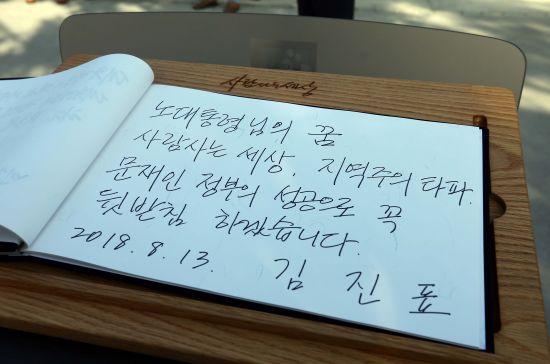 사람사는세상
노대통령님의 꿈
사람사는 세상, 지역주의 타파.
문재인 정부의 성공으로 꼭
뒷받침 하겠습니다.
2018. 8. 13. 김 진 표